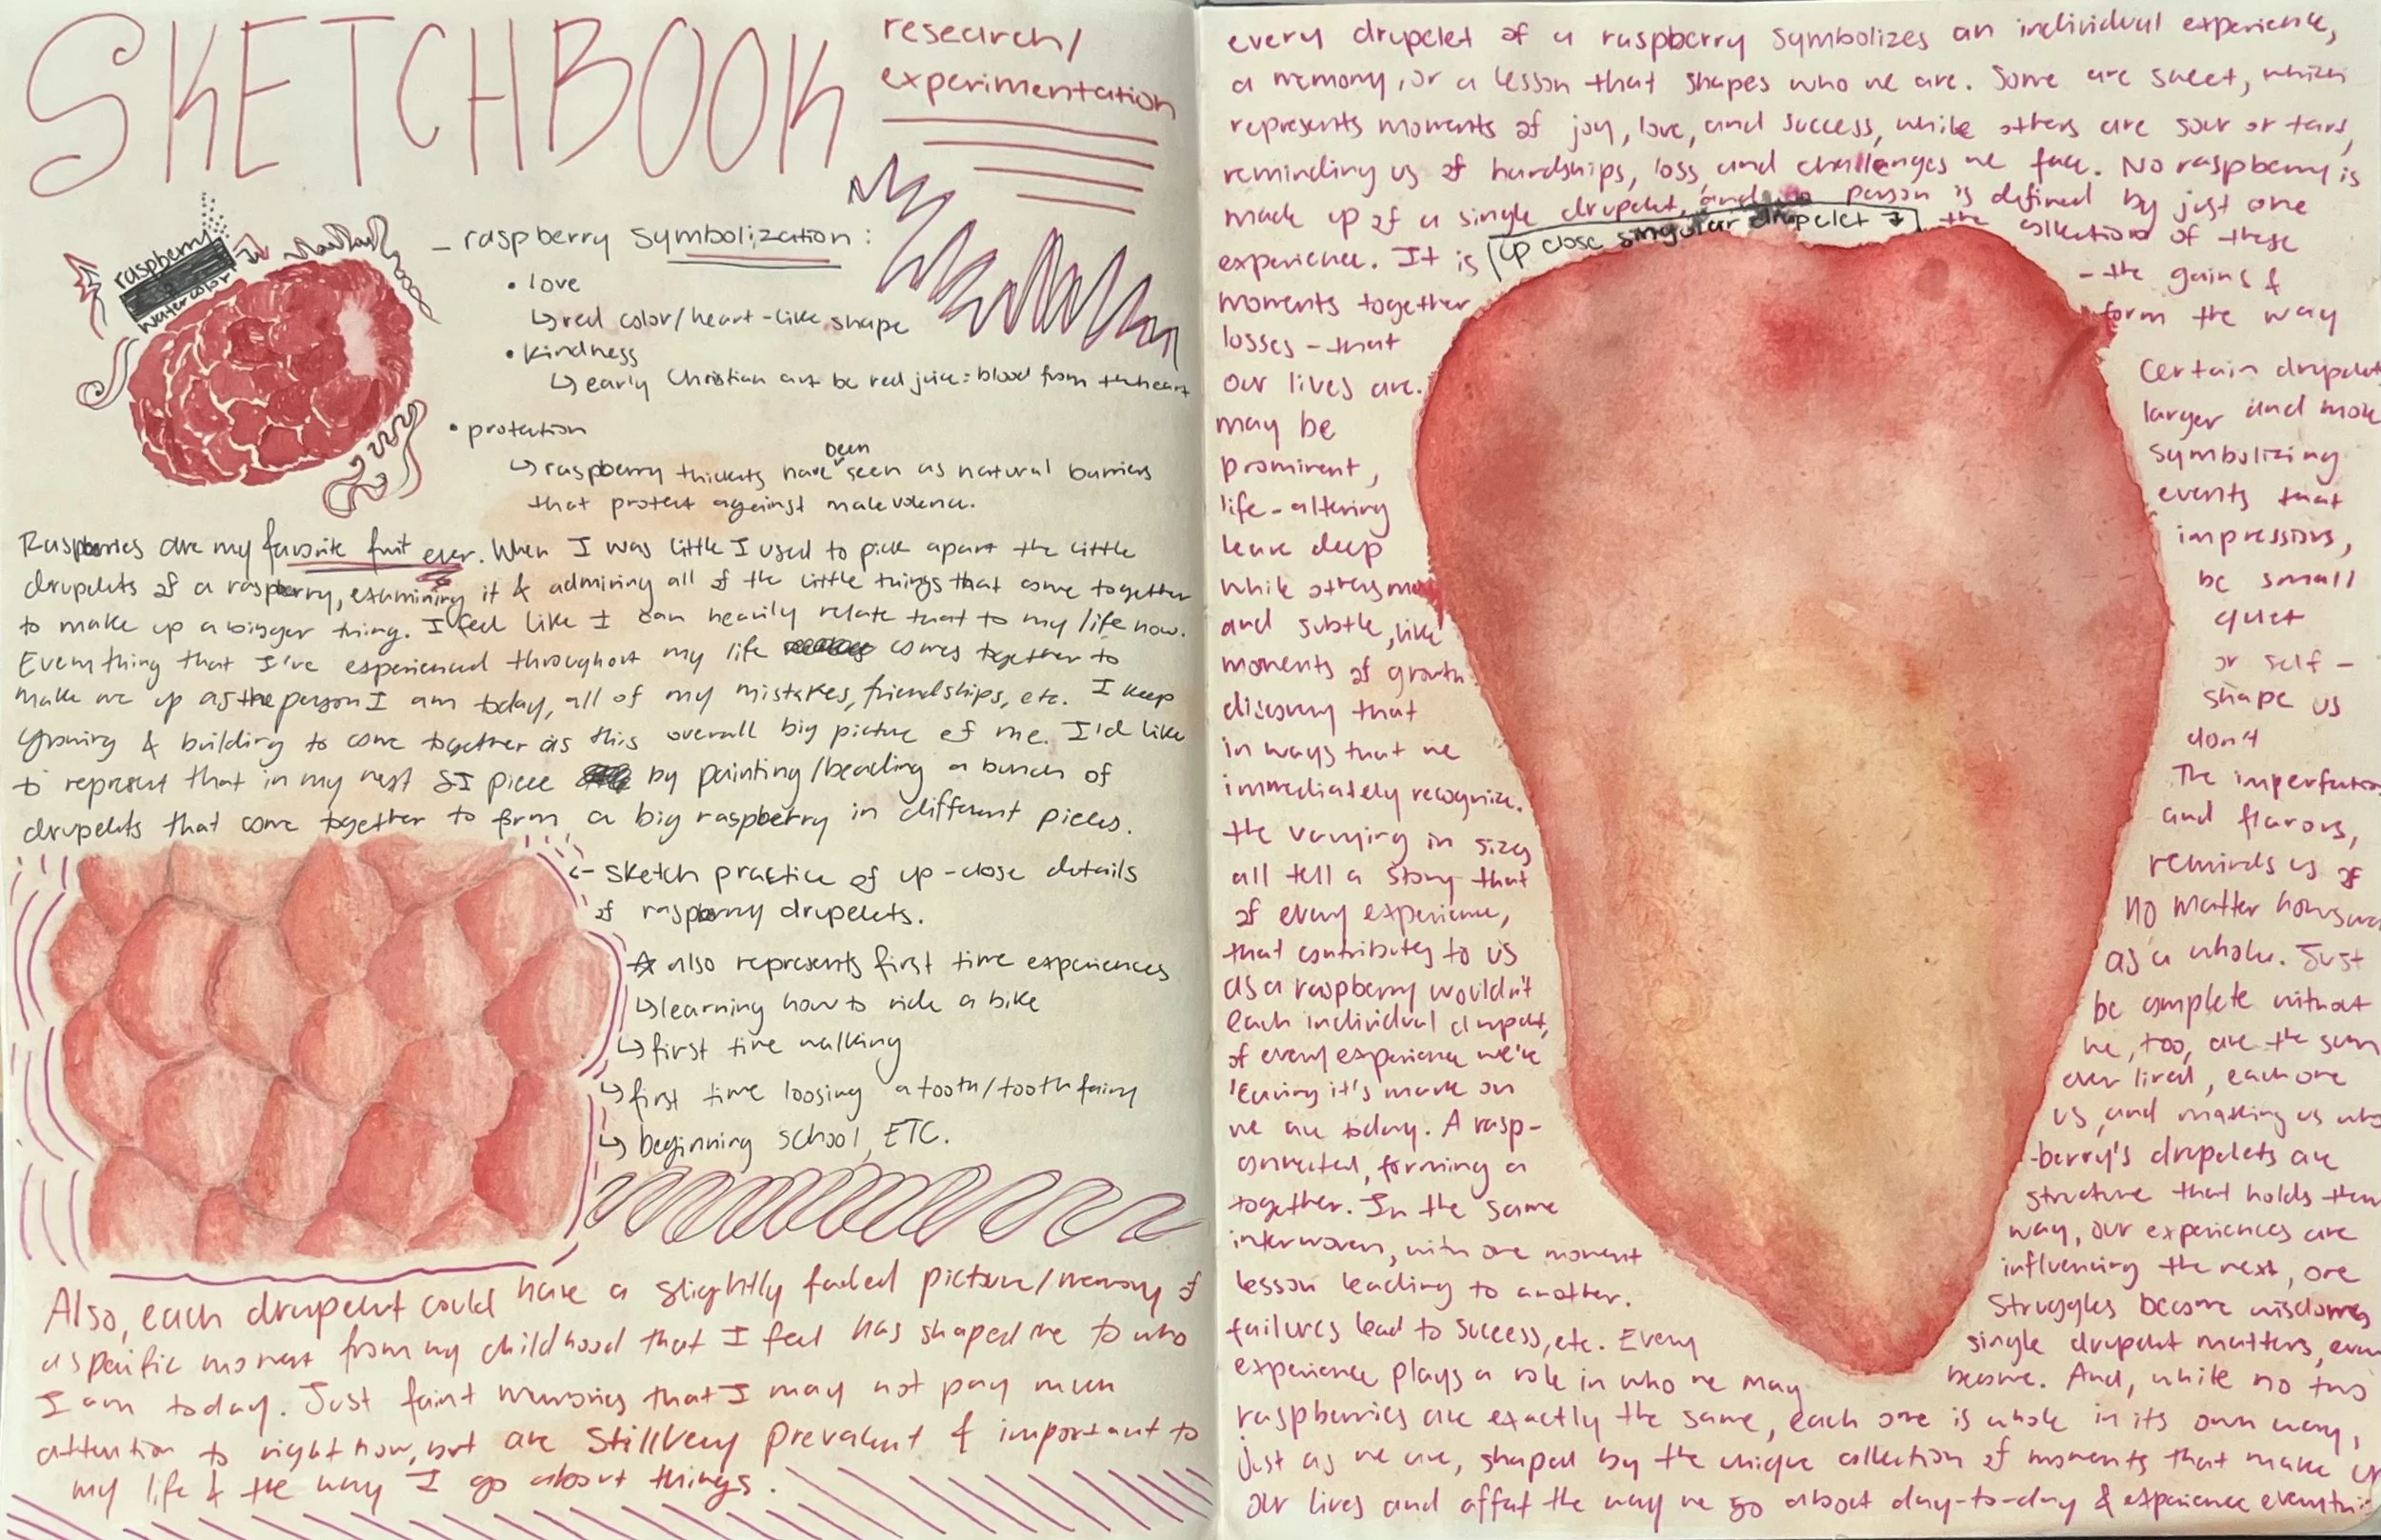 SKETCHBOOK
research/
experimentation
raspberry
watercolor
- raspberry symbolization:
• love
↳ red color/heart-like shape
• kindness
↳ early Christian art be red juice = blood from the heart
• protection
↳ raspberry thickets have been seen as natural barriers
that protect against malevolence.
Raspberries are my favorite fruit ever. When I was little I used to pick apart the little
drupelets of a raspberry, examining it & admiring all of the little things that come together
to make up a bigger thing. I feel like I can heavily relate that to my life now.
Everything that I've experienced throughout my life comes together to
make me up as the person I am today, all of my mistakes, friendships, etc. I keep
growing & building to come together as this overall big picture of me. I'd like
to represent that in my next SI piece by painting/beading a bunch of
drupelets that come together to form a big raspberry in different pieces.
<- sketch practice of up-close details
of raspberry drupelets.
☆ also represents first time experiences
↳ learning how to ride a bike
↳ first time walking
↳ first time loosing a tooth/tooth fairy
↳ beginning school, ETC.
Also, each drupelet could have a slightly faded picture/memory of
a specific moment from my childhood that I feel has shaped me to who
I am today. Just faint memories that I may not pay much
attention to right now, but are still very prevalent & important to
my life & the way I go about things.
every drupelet of a raspberry symbolizes an individual experience,
a memory, or a lesson that shapes who we are. Some are sweet, which
represents moments of joy, love, and success, while others are sour or tart,
reminding us of hardships, loss, and challenges we face. No raspberry is
made up of a single drupelet, and no person is defined by just one
up close singular drupelet ↴
experience. It is the collection of these
moments together - the gains &
losses - that form the way
our lives are. Certain drupelets
may be larger and more
prominent, symbolizing
life-altering events that
leave deep impressions,
while others may be small
and subtle, like quiet
moments of growth or self-
discovery that shape us
in ways that we don't
immediately recognize. The imperfections
the varying in sizes and flavors,
all tell a story that reminds us of
of every experience, no matter how small
that contributes to us as a whole. Just
as a raspberry wouldn't be complete without
each individual drupelet, we, too, are the sum
of every experience we've ever lived, each one
leaving it's mark on us, and making us who
we are today. A rasp- -berry's drupelets are
connected, forming a structure that holds them
together. In the same way, our experiences are
interwoven, with one moment influencing the next, one
lesson leading to another. Struggles become wisdom,
failures lead to success, etc. Every single drupelet matters, every
experience plays a role in who we may become. And, while no two
raspberries are exactly the same, each one is whole in its own way,
just as we are, shaped by the unique collection of moments that make up
our lives and affect the way we go about day-to-day & experience everything